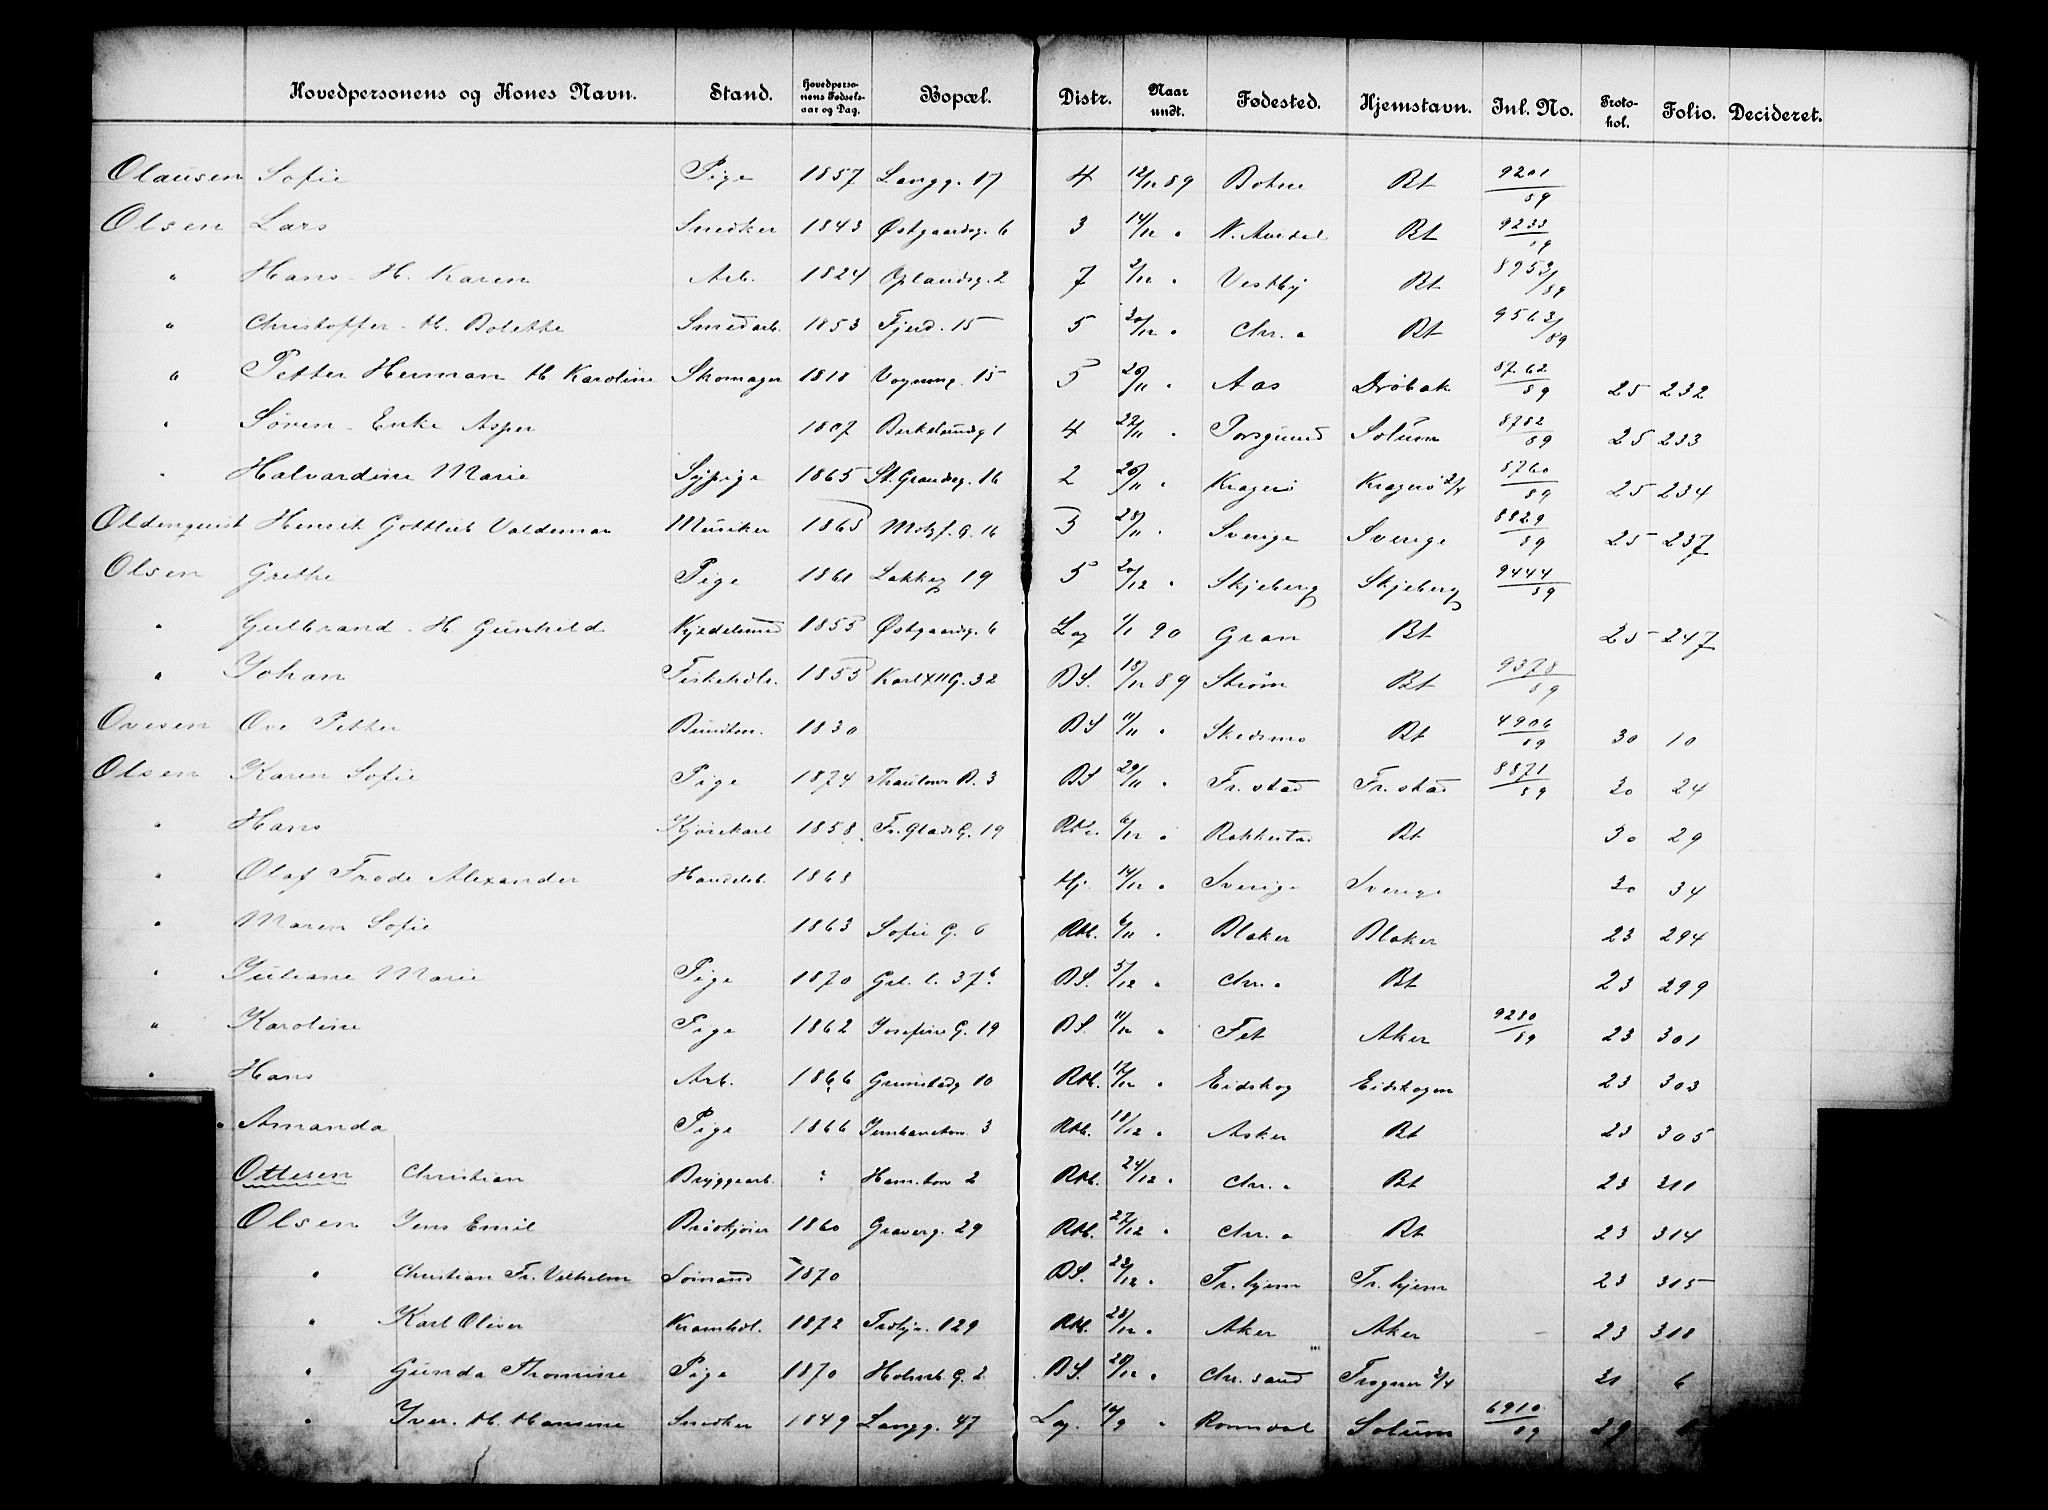 Hovedpersonens og Kones Navn. Stand. Hovedpersonens Fødselsaar og Dag. Bopæl. Distr. Naar undt. Fødested. Hjemstavn. Inl. No. Protokol. Folio. Decideret.
Olausen Sofie Pige 1857 Langg. 17 4 12/12 89 Bohus Bt 9201/89
Olsen Lars Snedker 1843 Østgaardsg. 6 3 14/12 " N. Aurdal Bt 9233/89
" Hans - H. Karen Arb. 1824 Oplandsg. 2 7 2/12 " Vestby Bt 8953/89
" Christoffer - H. Bolette Smedarb. 1853 Fjerd. 15 5 20/12 " Chr.a Bt 9563/89
" Petter Herman H. Karoline Skomager 1818 Vognmg. 15 5 26/11 " Aas Drøbak 8762/89 25 232
" Søren - Enke Asper 1807 Birkelundg 1 4 22/11 " Porsgrund Solum 8782/89 25 233
" Halvardine Marie Sypige 1865 St. Grændseg. 16 2 26/11 " Kragerø Kragerø 2/4 8760/89 25 234
Oldenquist Henrik Gottlieb Valdemar Musiker 1865 Motzf. G. 16 3 28/11 " Sverige Sverige 8829/89 25 237
Olsen Grethe Pige 1861 Lakkeg 19 5 20/12 " Skjeberg Skjeberg 9444/89
" Gulbrand - H. Gunhild Kjedelsmed 1855 Østgaardsg. 6 Lag 1/1 90 Gran Bt 25 247
" Johan Fiskehdlr. 1855 Karl XII G. 32 BS. 18/12 89 Strøm Bt 9378/89
Ovesen Ove Petter Bundtm. 1830 BS 11/11 " Skedsmo Bt 4906/89 30 10
Olsen Karen Sofie Pige 1874 Thaulows B. 3 BS 29/11 " Fr.stad Fr.stad 8871/89 30 24
" Hans Kjørekarl 1858 Fr. Glads G. 19 6/12 " Rakkestad Bt 30 29
" Olaf Frode Alexander Handelsb. 1868 Hj. 14/12 " Sverige Sverige 30 34
" Maren Sofie 1863 Sofie G. 6 Rtb. 6/11 " Blaker Blaker 23 294
" Juliane Marie Pige 1870 Grl. l. 37 b BS. 5/12 " Chr.a Bt 23 299
" Karoline Pige 1862 Josefine G. 19 BS. 11/12 " Fet Aker 9280/89 23 301
" Hans Arb. 1866 Grimstadg 10 Rtb. 12/12 " Eidskog Eidskogen 23 303
" Amanda Pige 1866 Jernbanetorv. 3 Rtb. 18/12 " Asker Bt 23 305
Ottesen Christian Bryggearb. : Ham.torv 2 Rtb. 24/12 " Chr.a Bt 23 311
Olsen Jens Emil Brødkjører 1860 Graverg. 29 Rtb. 27/12 " Chr.a Bt 23 314
" Christian Fr. Vilhelm Sømand 1870 BS. 23/12 " Tr.hjem Tr.hjem 23 315
" Karl Oliver Kramhdl. 1872 Trohj. 129 Rtb. 28/12 " Aker Aker 23 318
" Gunda Thomine Pige 1870 Holmb G. 2 BS. 20/12 " Chr.sand Tragerø 2/4 31 6
" Iver - H. Hansine Snedker 1849 Langg. 47 Lag. 10/9 " Romsdal Solum 6910/89 29